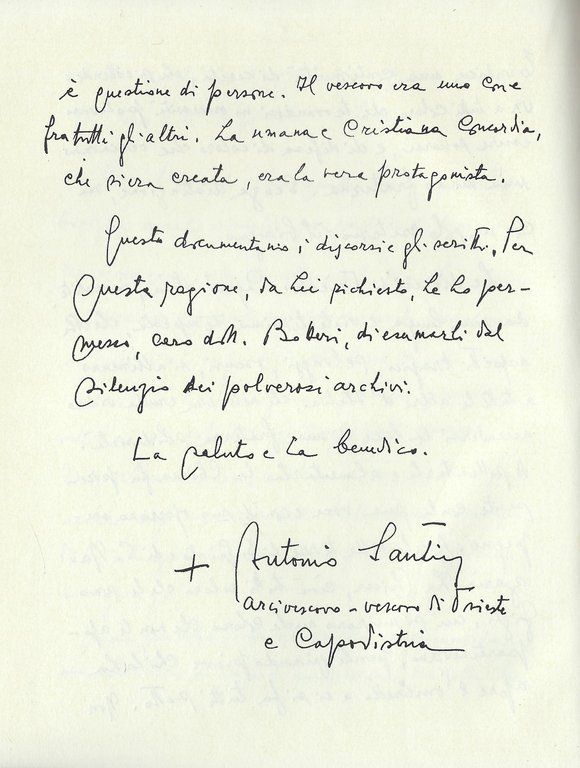 è questione di persone. Il vescovo era uno con e
fra tutti gli altri. La umana e Cristiana Concordia,
che si era creata, era la vera protagonista.
Questo documentano i discorsi e gli scritti. Per
questa ragione, da Lei richiesto, Le ho per-
messo, caro dott. Botteri, di esumarli dal
silenzio dei polverosi archivi.
La saluto e La benedico.
+ Antonio Santin
arcivescovo - vescovo di Trieste
e Capodistria